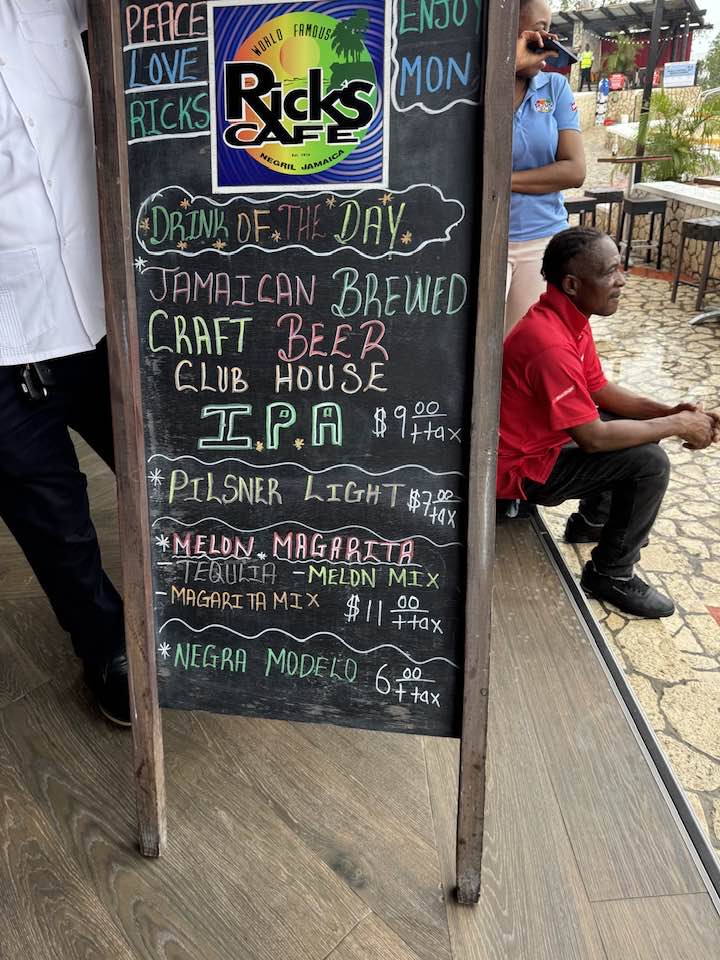 PEACE
LOVE
RICKS
WORLD FAMOUS
RICK'S
CAFE
Est. 1974
NEGRIL JAMAICA
ENJOY
MON
DRINK OF THE DAY
* JAMAICAN BREWED
CRAFT BEER
CLUB HOUSE
I.P.A $9 00 +tax
* PILSNER LIGHT $7.00 +tax
* MELON MAGARITA
- TEQULIA - MELON MIX
- MAGARITA MIX $11 00 +tax
* NEGRA MODELO 6 00 +tax